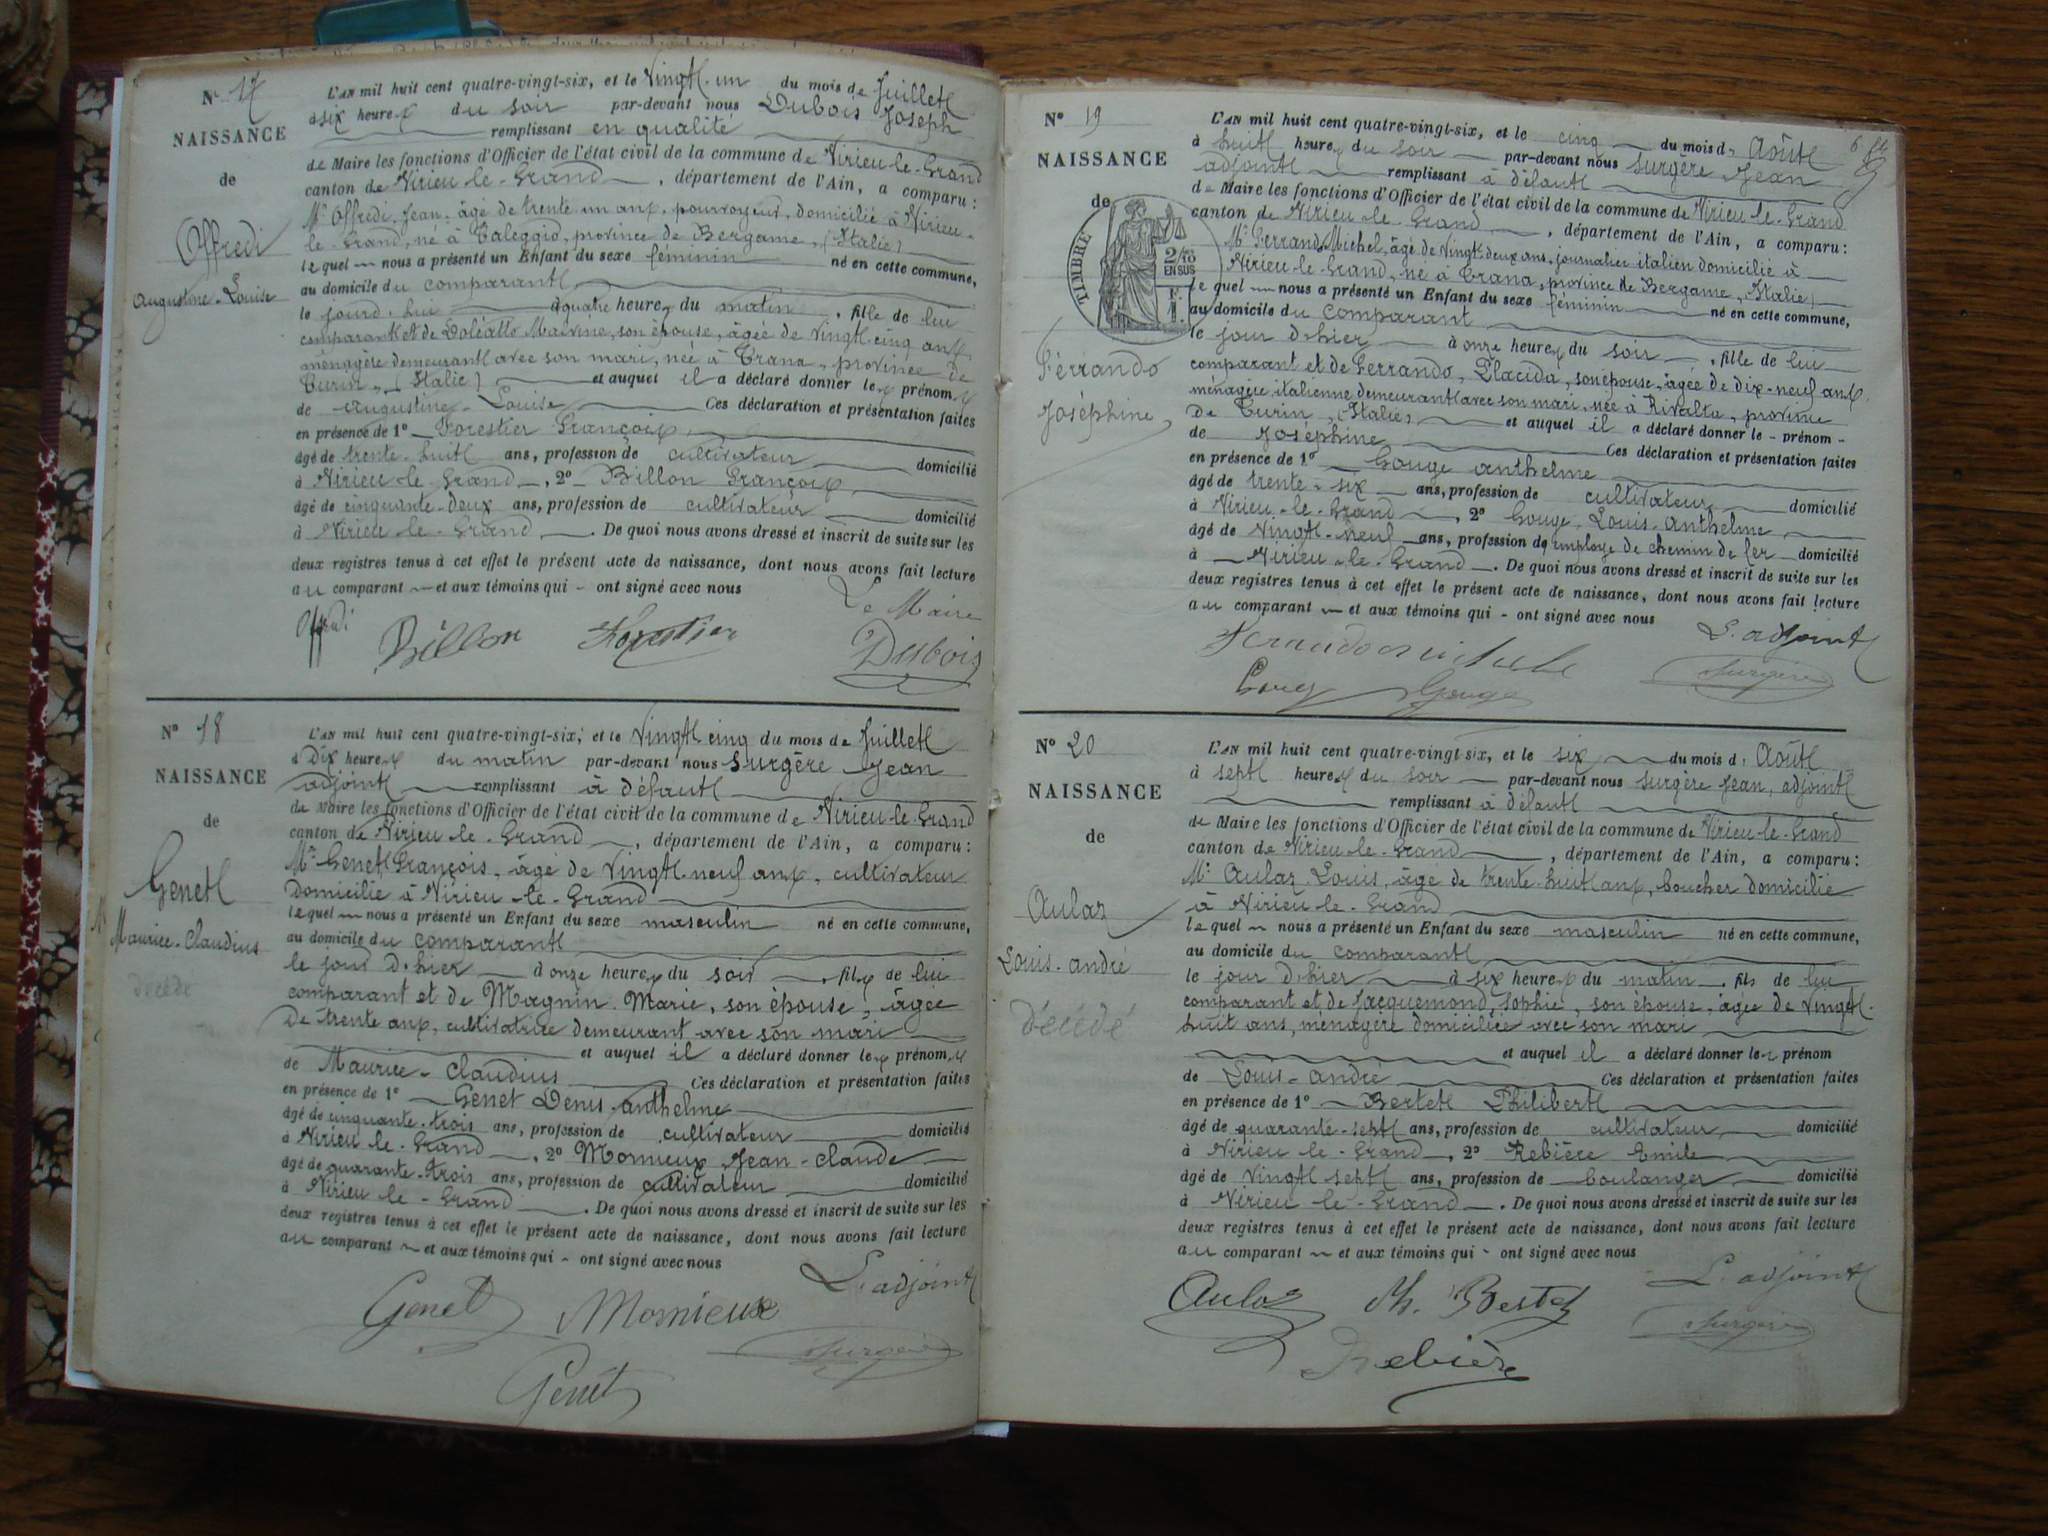 N° 17
NAISSANCE
de
Offredi
Augustine-Louise
L'AN mil huit cent quatre-vingt-six, et le Vingt-un du mois de Juillet
à six heures du soir par-devant nous Dubois Joseph
remplissant en qualité
de Maire les fonctions d'Officier de l'état civil de la commune de Virieu-le-Grand
canton de Virieu-le-Grand, département de l'Ain, a comparu :
Mr Offredi, Jean, âgé de trente un ans, pourvoyeur, domicilié à Virieu-
le-Grand, né à Taleggio, province de Bergame, (Italie)
lequel nous a présenté un Enfant du sexe féminin né en cette commune,
au domicile du comparant
le jourd'hui à quatre heures du matin, fille de lui
comparant et de Doléatto Malvine, son épouse, âgée de vingt-cinq ans,
ménagère demeurant avec son mari, née à Trana, province de
Turin, (Italie) et auquel il a déclaré donner les prénoms
de Augustine-Louise Ces déclaration et présentation faites
en présence de 1° Forestier François
âgé de trente-huit ans, profession de cultivateur domicilié
à Virieu-le-Grand, 2° Billon François
âgé de cinquante-deux ans, profession de cultivateur domicilié
à Virieu-le-Grand. De quoi nous avons dressé et inscrit de suite sur les
deux registres tenus à cet effet le présent acte de naissance, dont nous avons fait lecture
au comparant et aux témoins qui ont signé avec nous
Le Maire
Offredi Billon Forestier Dubois
N° 18
NAISSANCE
de
Genet
Maurice-Claudius
décédé
L'AN mil huit cent quatre-vingt-six, et le Vingt cinq du mois de Juillet
à Dix heures du matin par-devant nous Surgère Jean
adjoint remplissant à défaut
de Maire les fonctions d'Officier de l'état civil de la commune de Virieu-le-Grand
canton de Virieu-le-Grand, département de l'Ain, a comparu :
Mr Genet François, âgé de Vingt-neuf ans, cultivateur
domicilié à Virieu-le-Grand
lequel nous a présenté un Enfant du sexe masculin né en cette commune,
au domicile du comparant
le jour d'hier à onze heures du soir, fils de lui
comparant et de Magnin Marie, son épouse, âgée
de trente ans, cultivatrice demeurant avec son mari
et auquel il a déclaré donner les prénoms
de Maurice-Claudius Ces déclaration et présentation faites
en présence de 1° Genet Denis-Anthelme
âgé de cinquante-trois ans, profession de cultivateur domicilié
à Virieu-le-Grand, 2° Monnieux Jean-Claude
âgé de quarante-trois ans, profession de cultivateur domicilié
à Virieu-le-Grand. De quoi nous avons dressé et inscrit de suite sur les
deux registres tenus à cet effet le présent acte de naissance, dont nous avons fait lecture
au comparant et aux témoins qui ont signé avec nous
L'adjoint
Genet Monnieux Surgère
Genet
N° 19
NAISSANCE
de
TIMBRE
2/10
EN SUS
Ferrando
Joséphine
L'AN mil huit cent quatre-vingt-six, et le cinq du mois d'Août
à huit heures du soir par-devant nous Surgère Jean
adjoint remplissant à défaut
de Maire les fonctions d'Officier de l'état civil de la commune de Virieu-le-Grand
canton de Virieu-le-Grand, département de l'Ain, a comparu :
Mr Ferrando Michel, âgé de vingt-deux ans, journalier italien domicilié à
Virieu-le-Grand, né à Trana, province de Bergame, (Italie)
lequel nous a présenté un Enfant du sexe féminin né en cette commune,
au domicile du comparant
le jour d'hier à onze heures du soir, fille de lui
comparant et de Ferrando, Placida, son épouse, âgée de dix-neuf ans,
ménagère italienne demeurant avec son mari, née à Rivalta, province
de Turin, (Italie) et auquel il a déclaré donner le prénom
de Joséphine Ces déclaration et présentation faites
en présence de 1° Gouge Anthelme
âgé de trente-six ans, profession de cultivateur domicilié
à Virieu-le-Grand, 2° Gouge Louis-Anthelme
âgé de vingt-neuf ans, profession de employé de chemin de fer domicilié
à Virieu-le-Grand. De quoi nous avons dressé et inscrit de suite sur les
deux registres tenus à cet effet le présent acte de naissance, dont nous avons fait lecture
au comparant et aux témoins qui ont signé avec nous
L'adjoint
Ferrando Surgère
Gouge
N° 20
NAISSANCE
de
Aulaz
Louis-André
Décédé
L'AN mil huit cent quatre-vingt-six, et le six du mois d'Août
à sept heures du soir par-devant nous Surgère Jean, adjoint
remplissant à défaut
de Maire les fonctions d'Officier de l'état civil de la commune de Virieu-le-Grand
canton de Virieu-le-Grand, département de l'Ain, a comparu :
Mr Aulaz Louis, âgé de trente-huit ans, boucher domicilié
à Virieu-le-Grand
lequel nous a présenté un Enfant du sexe masculin né en cette commune,
au domicile du comparant
le jour d'hier à six heures du matin, fils de lui
comparant et de Jacquemond, Sophie, son épouse, âgée de Vingt-
huit ans, ménagère domiciliée avec son mari
et auquel il a déclaré donner les prénom
de Louis-André Ces déclaration et présentation faites
en présence de 1° Bertet Philibert
âgé de quarante-sept ans, profession de cultivateur domicilié
à Virieu-le-Grand, 2° Rebière Emile
âgé de vingt sept ans, profession de boulanger domicilié
à Virieu-le-Grand. De quoi nous avons dressé et inscrit de suite sur les
deux registres tenus à cet effet le présent acte de naissance, dont nous avons fait lecture
au comparant et aux témoins qui ont signé avec nous
L'adjoint
Aulaz Ph. Bertet Surgère
Rebière